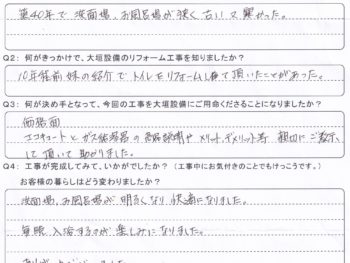 築40年で 洗面場、お風呂場が狭く古いて寒かった。
Q2：何がきっかけで、大垣設備のリフォーム工事を知りましたか？
10年程前 妹の紹介で トイレもリフォームして頂いたことがあった。
Q3：何が決め手となって、今回の工事を大垣設備にご用命くださることになりましたか？
価格面
エコキュートとガス給湯器の メリット、デメリット等 親切にご教示
して頂いて助かりました。
Q4：工事が完成してみて、いかがでしたか？（工事中にお気付きのことでもけっこうです。）
お客様の暮らしはどう変わりましたか？
洗面場、お風呂場が 明るくなり 快適になりました。
毎晩 入浴するのが 楽しみになりました。